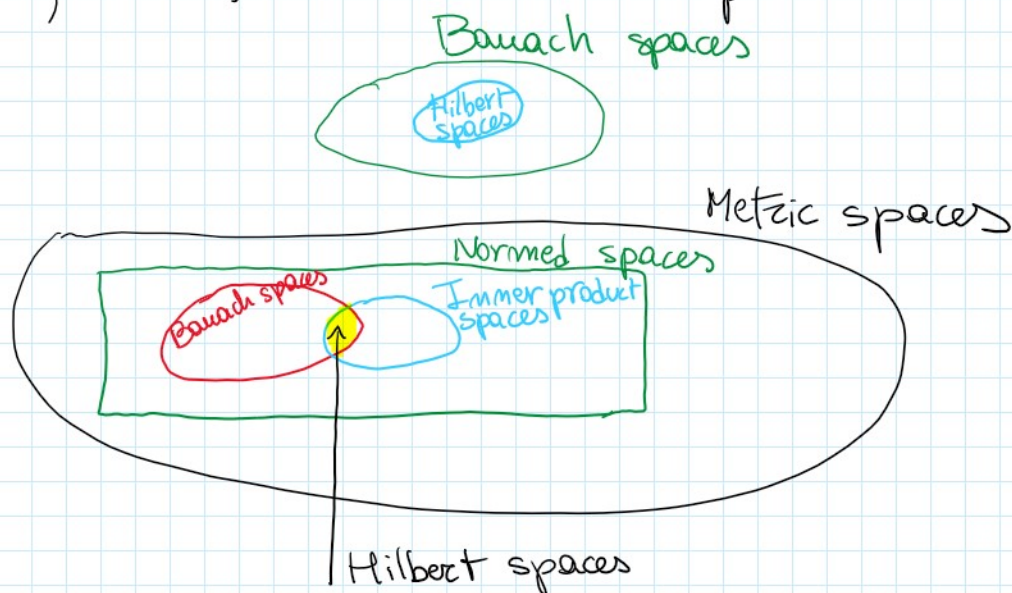 Banach spaces
Hilbert
spaces
Metric spaces
Normed spaces
Banach spaces
Inner product
spaces
Hilbert spaces